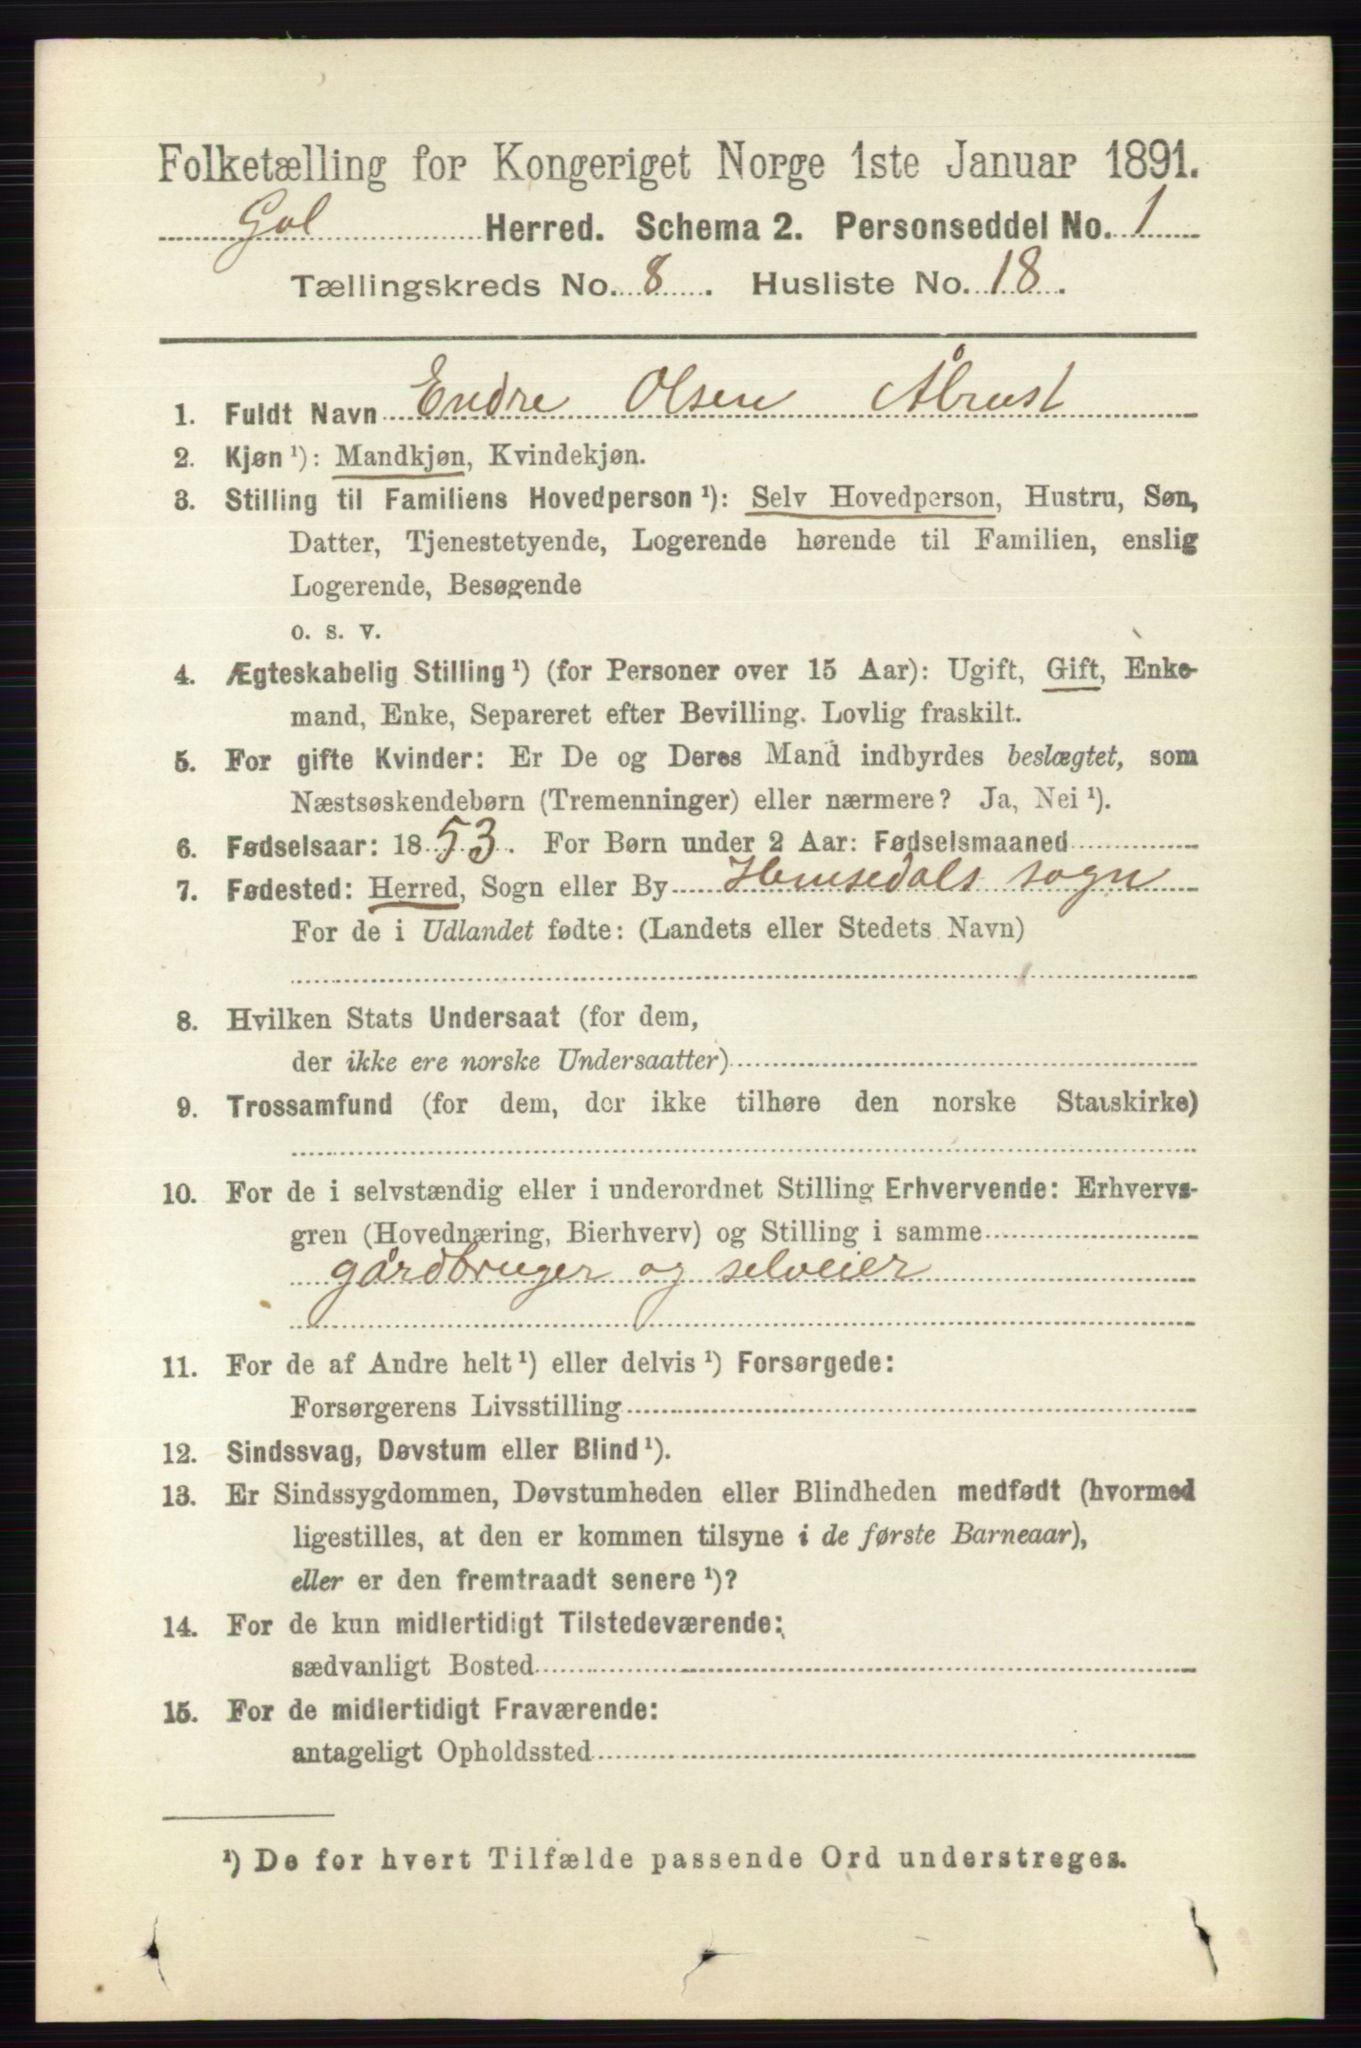 Folketælling for Kongeriget Norge 1ste Januar 1891.
Gol Herred. Schema 2. Personseddel No. 1
Tællingskreds No. 8. Husliste No. 18.
1. Fuldt Navn Endre Olsen Åbrust
2. Kjøn ¹): Mandkjøn, Kvindekjøn.
3. Stilling til Familiens Hovedperson ¹): Selv Hovedperson, Hustru, Søn,
Datter, Tjenestetyende, Logerende hørende til Familien, enslig
Logerende, Besøgende
o. s. v.
4. Ægteskabelig Stilling ¹) (for Personer over 15 Aar): Ugift, Gift, Enke-
mand, Enke, Separeret efter Bevilling. Lovlig fraskilt.
5. For gifte Kvinder: Er De og Deres Mand indbyrdes beslægtet, som
Næstsøskendebørn (Tremenninger) eller nærmere? Ja, Nei ¹).
6. Fødselsaar: 1853. For Børn under 2 Aar: Fødselsmaaned
7. Fødested: Herred, Sogn eller By Hemsedals sogn
For de i Udlandet fødte: (Landets eller Stedets Navn)
8. Hvilken Stats Undersaat (for dem,
der ikke ere norske Undersaatter)
9. Trossamfund (for dem, der ikke tilhøre den norske Statskirke)
10. For de i selvstændig eller i underordnet Stilling Erhvervende: Erhvervs-
gren (Hovednæring, Bierhverv) og Stilling i samme
gårdbruger og selveier
11. For de af Andre helt ¹) eller delvis ¹) Forsørgede:
Forsørgerens Livsstilling
12. Sindssvag, Døvstum eller Blind ¹).
13. Er Sindssygdommen, Døvstumheden eller Blindheden medfødt (hvormed
ligestilles, at den er kommen tilsyne i de første Barneaar),
eller er den fremtraadt senere ¹)?
14. For de kun midlertidigt Tilstedeværende:
sædvanligt Bosted
15. For de midlertidigt Fraværende:
antageligt Opholdssted
¹) De for hvert Tilfælde passende Ord understreges.